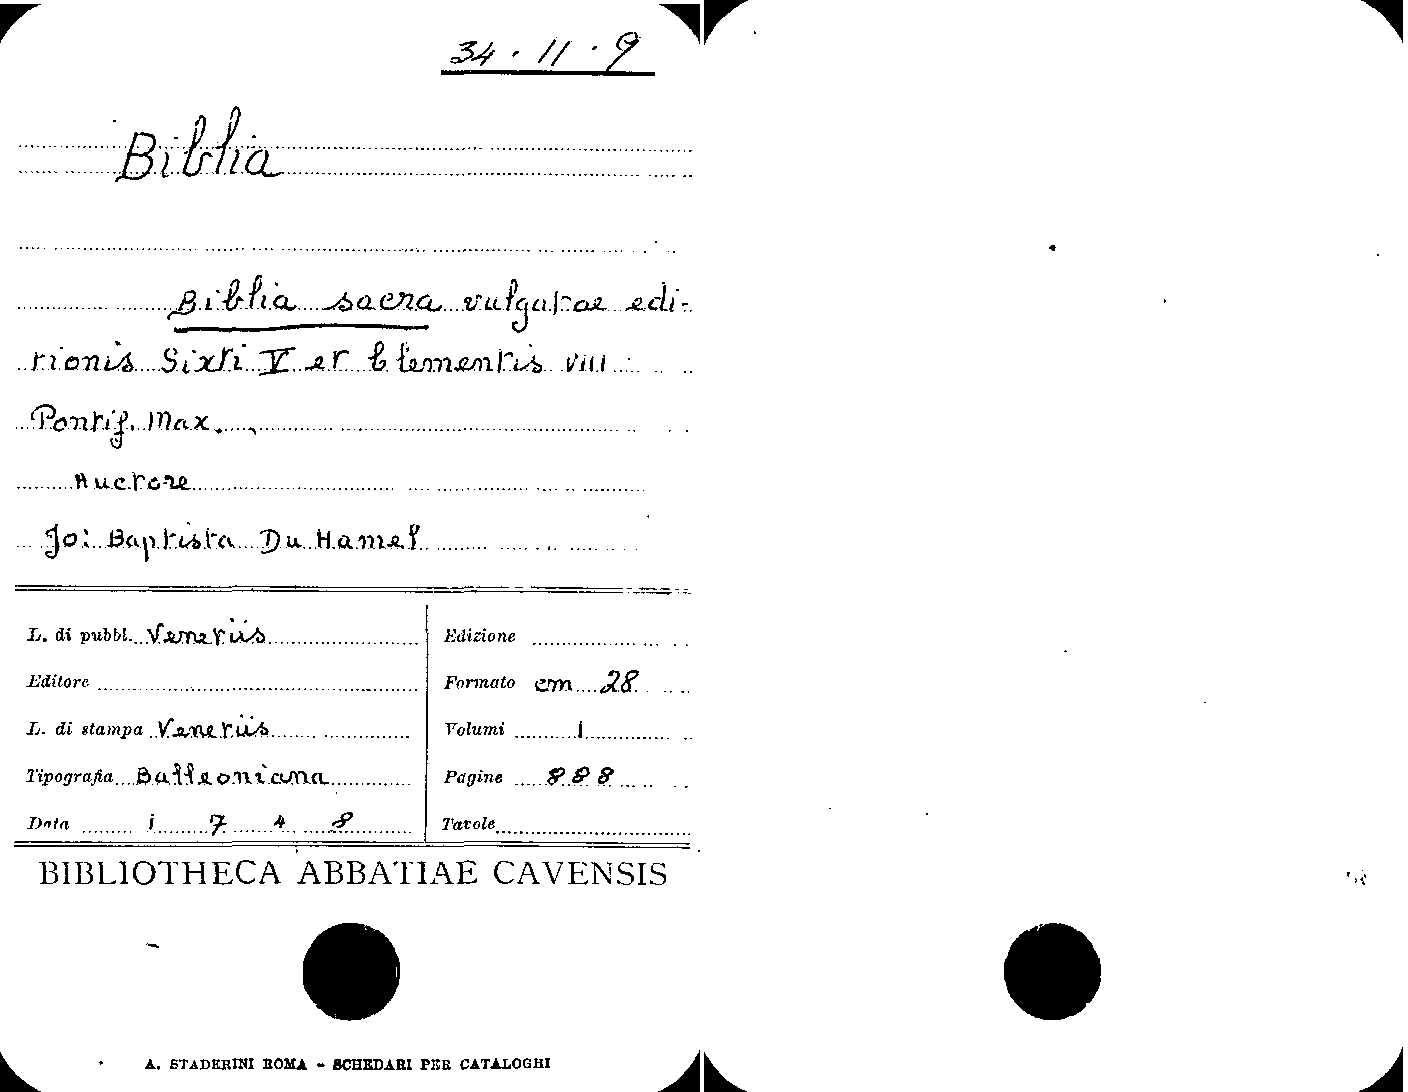 34 · 11 · 9
Biblia
Biblia sacra vulgatae edi-
tionis Sixti V et Clementis VIII
Pontif. Max.
Auctore
Jo: Baptista Du Hamel
L. di pubbl. Venetiis
Edizione
Editore
Formato cm 28
L. di stampa Venetiis
Volumi 1
Tipografia Balleoniana
Pagine 888
Data 1748
Tavole
BIBLIOTHECA ABBATIAE CAVENSIS
A. STADERINI ROMA - SCHEDARI PER CATALOGHI